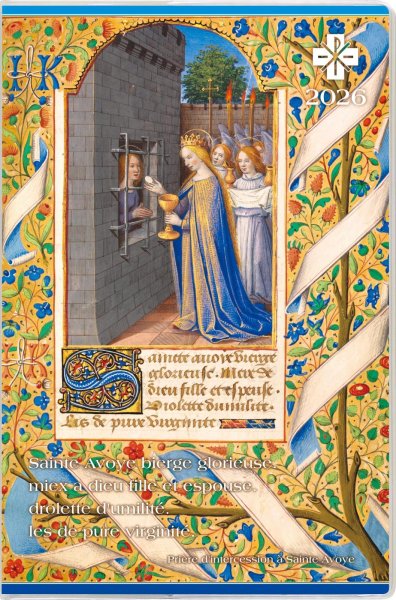 2026
K
Sainte avoie bierge
glorieuse. Miex de
dieu fille et espeuse.
Drolette dumilite.
Lis de pure virginite
Sainte Avoye bierge glorieuse,
miex à dieu fille et espouse,
drolette d'umilité,
les de pure virginité.
- Prière d'intercession à Sainte Avoye